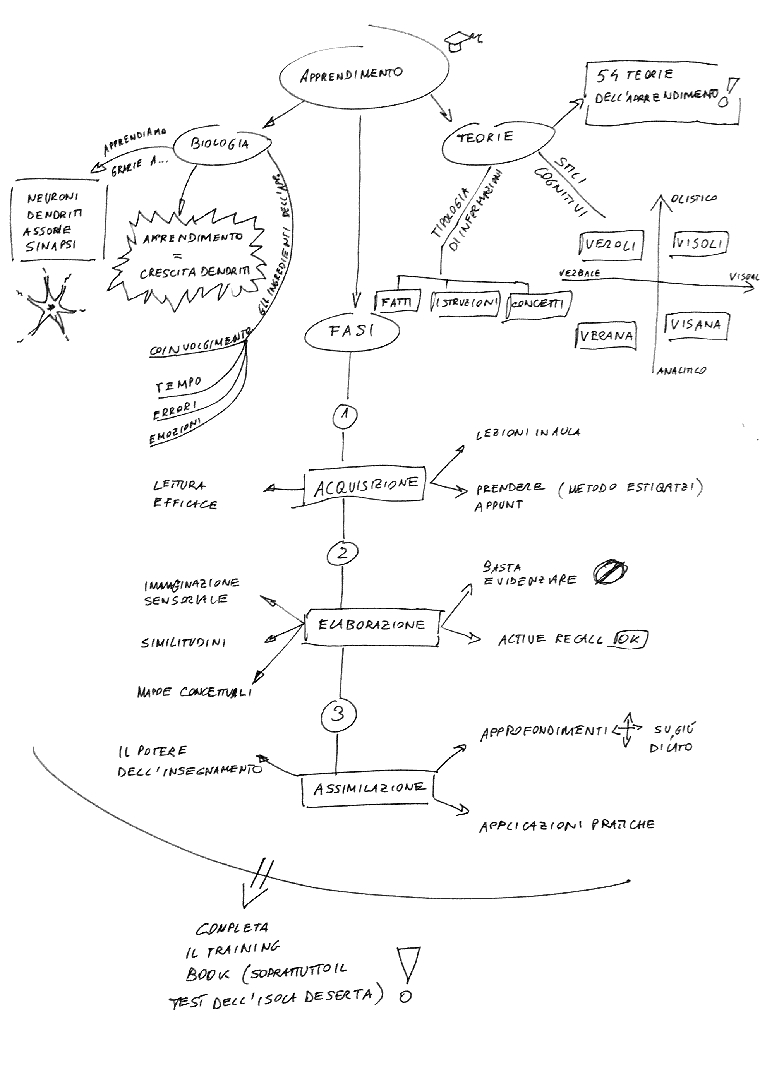 APPRENDIMENTO
BIOLOGIA
APPRENDIAMO
GRAZIE A...
NEURONI
DENDRITI
ASSONE
SINAPSI
APPRENDIMENTO
=
CRESCITA DENDRITI
GLI INGREDIENTI DELL'APP.
COINVOLGIMENTO
TEMPO
ERRORI
EMOZIONI
TEORIE
54 TEORIE
DELL'APPRENDIMENTO !
TIPOLOGIA
DI INFORMAZIONI
FATTI
ISTRUZIONI
CONCETTI
STILI
COGNITIVI
OLISTICO
VEROLI
VISOLI
VERBALE
VISUAL
VERANA
VISANA
ANALITICO
FASI
1
ACQUISIZIONE
LETTURA
EFFICACE
LEZIONI IN AULA
PRENDERE (METODO ESTIGATZI)
APPUNT
2
ELABORAZIONE
IMMAGINAZIONE
SENSORIALE
SIMILITUDINI
MAPPE CONCETTUALI
BASTA
EVIDENZIARE
ACTIVE RECALL OK
3
ASSIMILAZIONE
IL POTERE
DELL'INSEGNAMENTO
APPROFONDIMENTI SU, GIÙ
DI LATO
APPLICAZIONI PRATICHE
COMPLETA
IL TRAINING
BOOK (SOPRATTUTTO IL
TEST DELL'ISOLA DESERTA) !